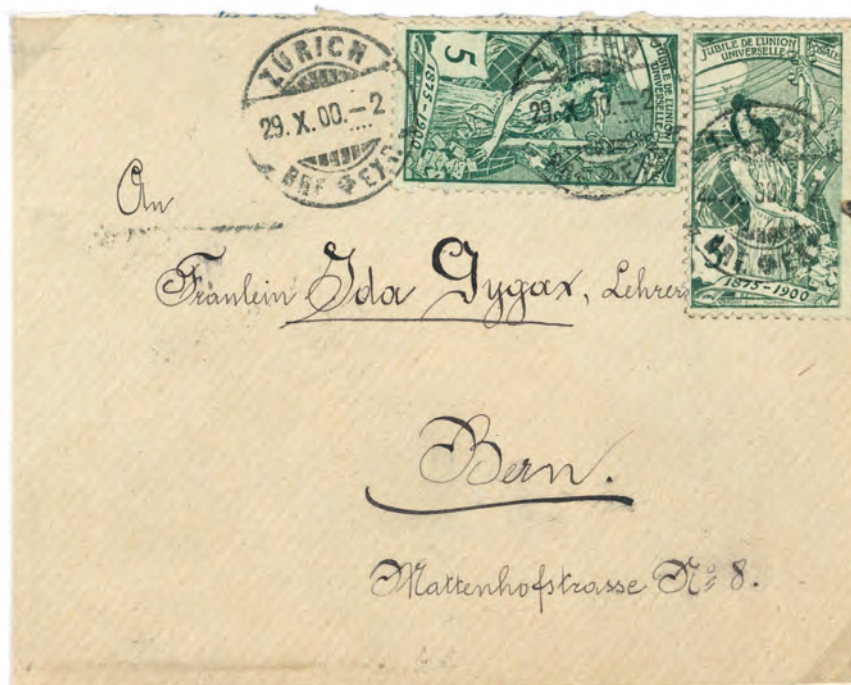 ZÜRICH
29.X.00.–2
BRF. EXP.
5
1875-1900
JUBILE DE L'UNION
UNIVERSELLE
ZÜRICH
29.X.00.–2
JUBILE DE L'UNION POSTALE
UNIVERSELLE
5
1875-1900
An
Fräulein Ida Gygax, Lehrer
Bern.
Mattenhofstrasse No 8.